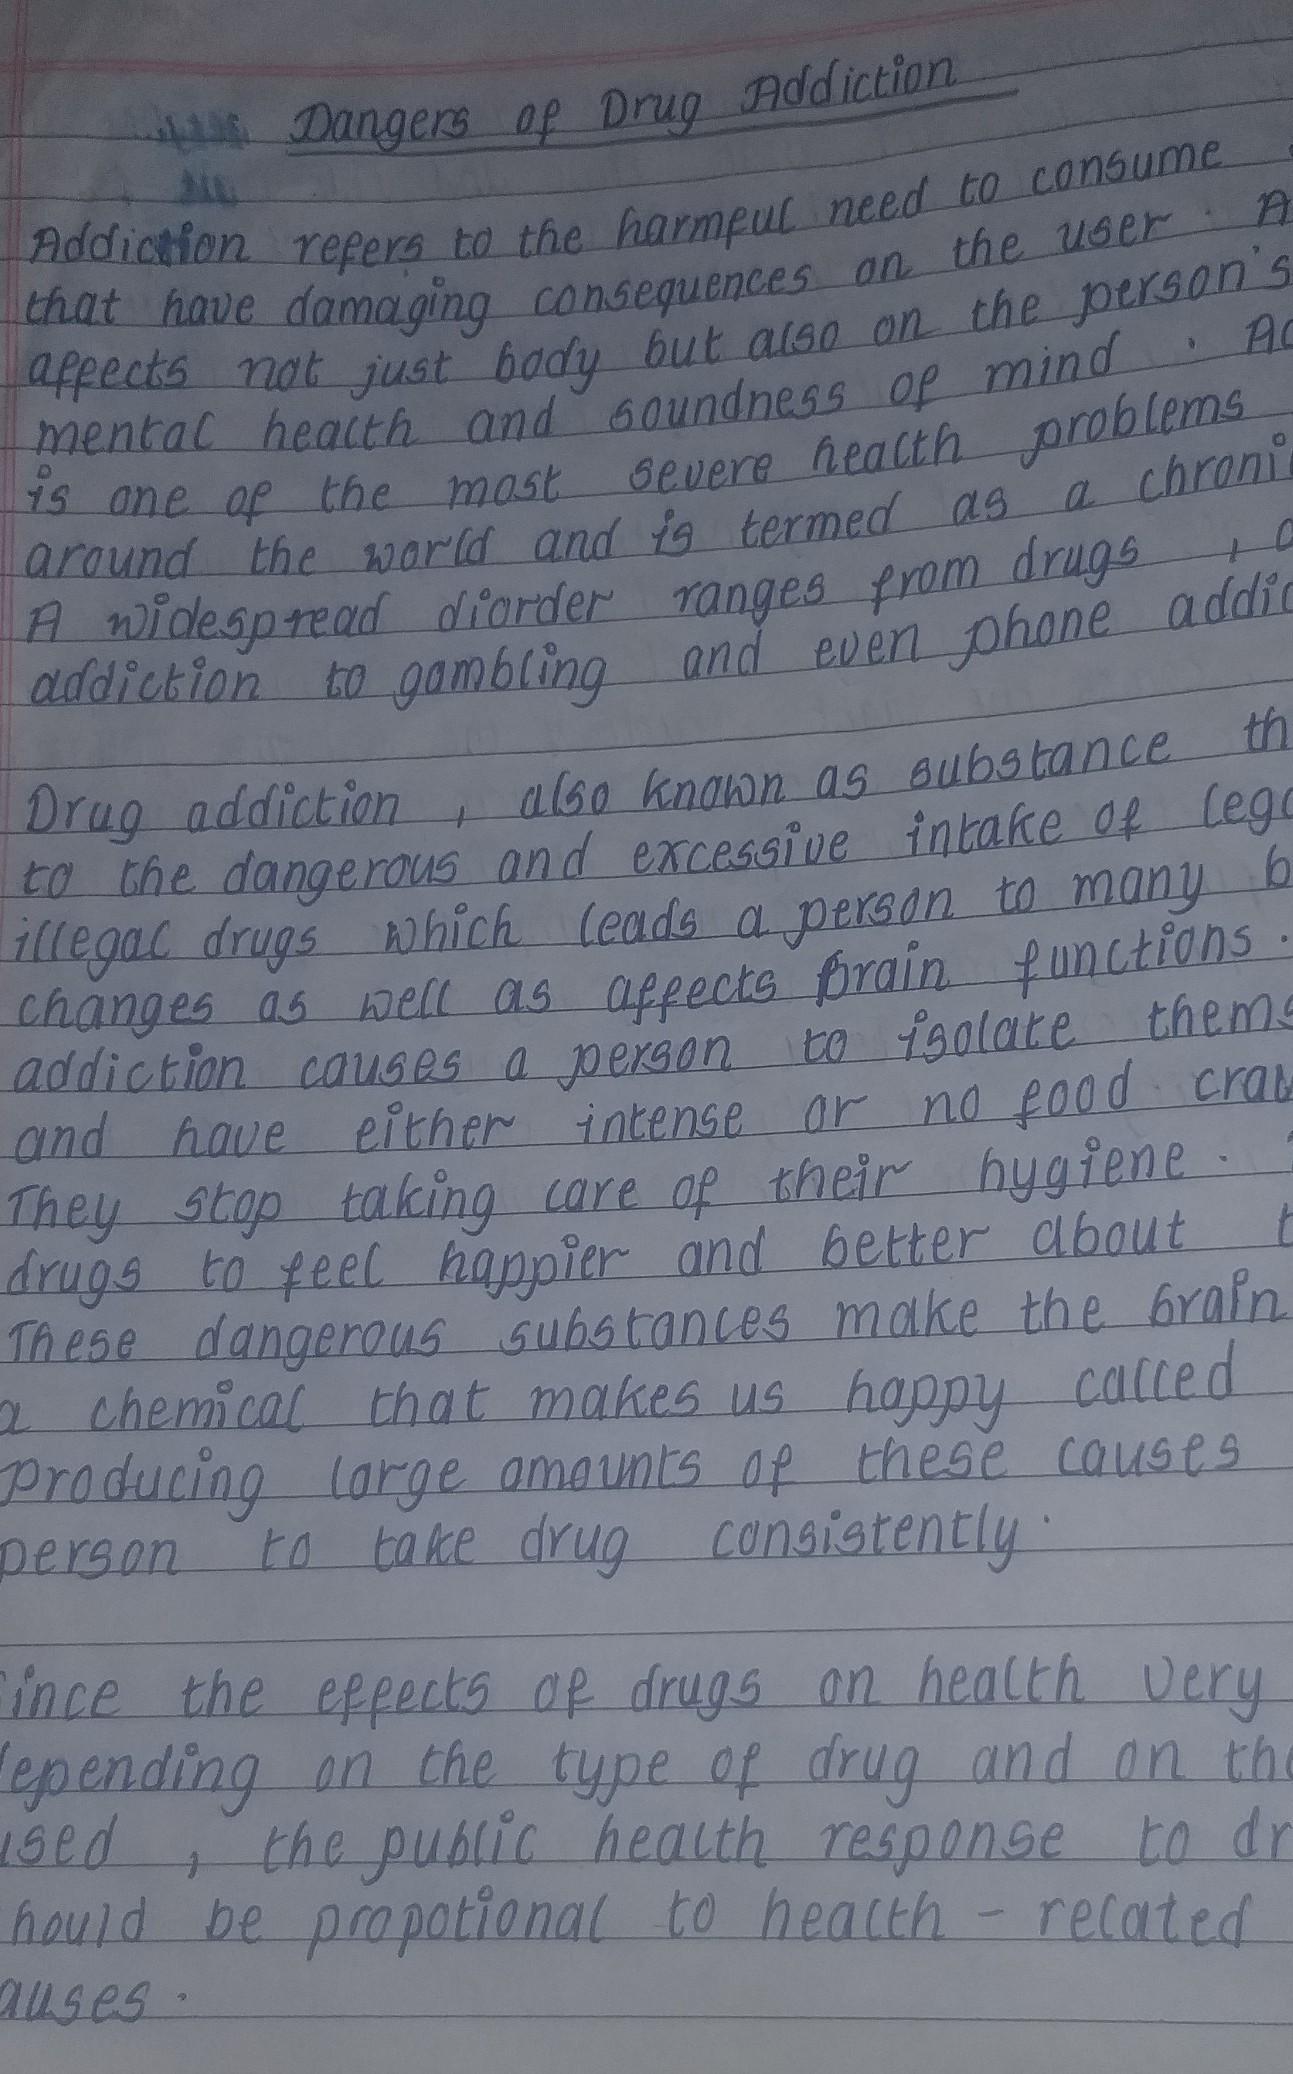 Dangers of Drug Addiction
Addiction refers to the harmful need to consume
that have damaging consequences on the user. A
affects not just body but also on the person's
mental health and soundness of mind. Ad
is one of the most severe health problems
around the world and is termed as a chroni
A widespread diorder ranges from drugs,
addiction to gambling and even phone addic
Drug addiction, also known as substance th
to the dangerous and excessive intake of lega
illegal drugs which leads a person to many b
changes as well as affects brain functions.
addiction causes a person to isolate thems
and have either intense or no food crav
They stop taking care of their hygiene.
drugs to feel happier and better about t
These dangerous substances make the brain
a chemical that makes us happy called
producing large amounts of these causes
person to take drug consistently.
ince the effects of drugs on health very
epending on the type of drug and on the
used, the public health response to dr
hould be propotional to health-related
auses.